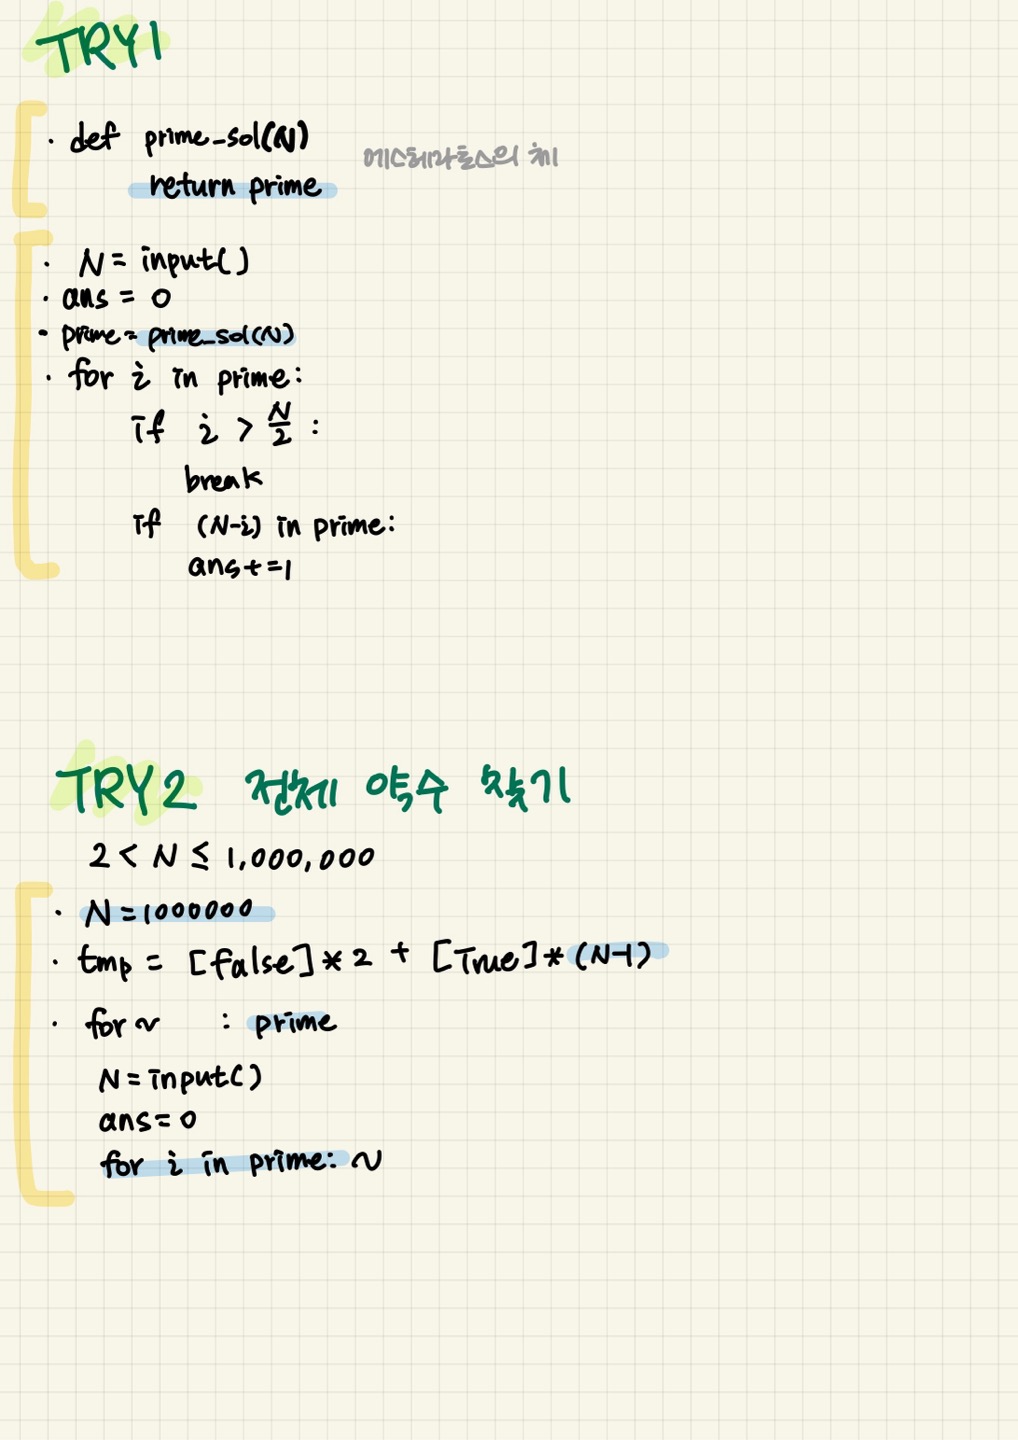 TRY1
· def prime_sol(N)
에스테라토스의 체
return prime
· N = input()
· ans = 0
· prime = prime_sol(N)
· for i in prime:
if i > N/2 :
break
if (N-i) in prime:
ans+=1
TRY2 전체 약수 찾기
2 < N ≤ 1,000,000
· N=1000000
· tmp = [false]*2 + [True]*(N-1)
· for ~ : prime
N=input()
ans=0
for i in prime: ~